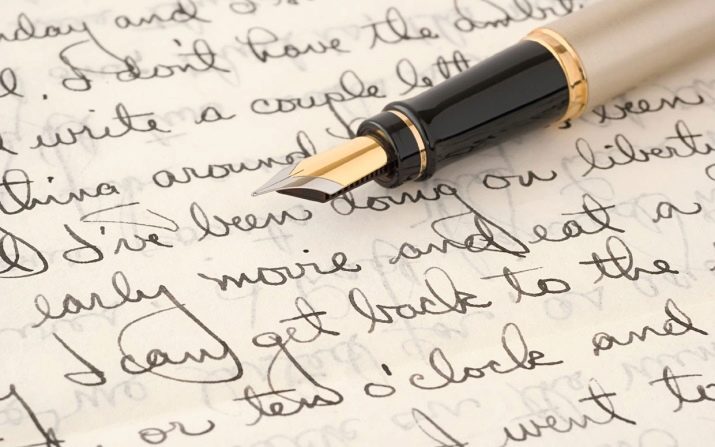 day and I
I don't have the ambit
write a couple lett
thing around been
I've been doing on liberty
early movie and eat a
I can get back to the
or ten o'clock and
I went to